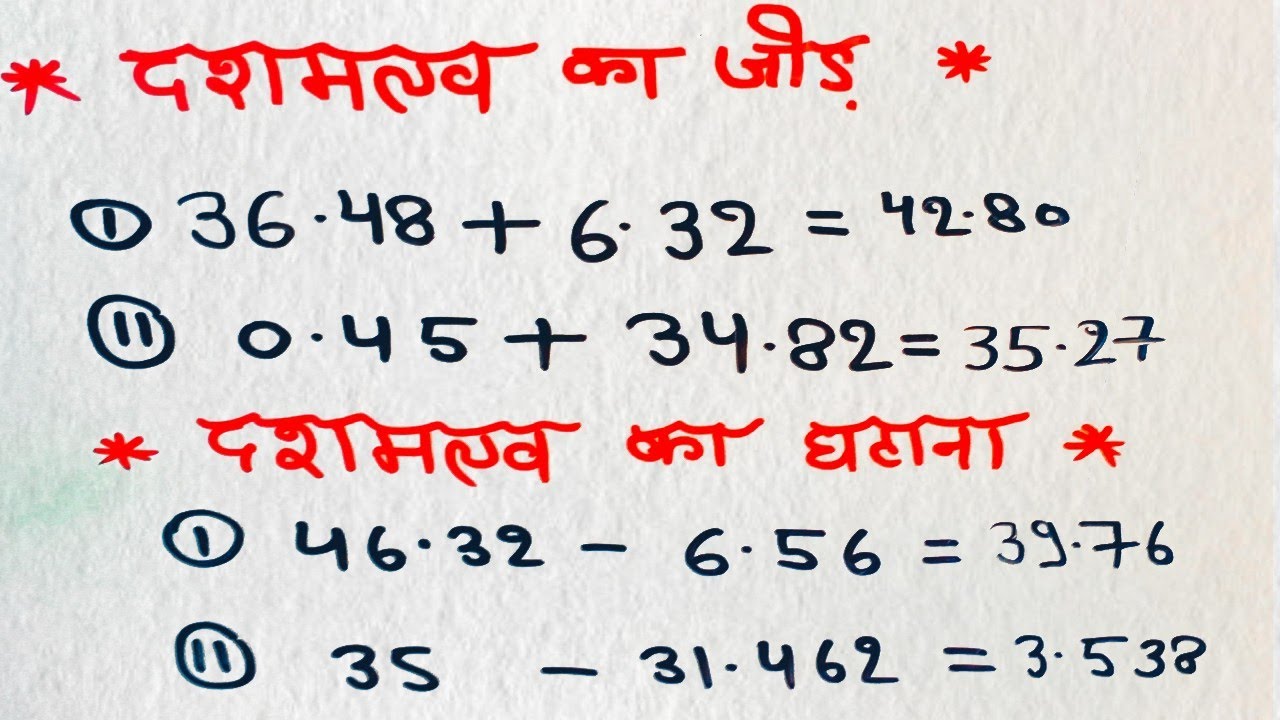 * दशमलव का जोड़ *
① 36.48 + 6.32 = 42.80
⑪ 0.45 + 34.82 = 35.27
* दशमलव का घटाना *
① 46.32 - 6.56 = 39.76
⑪ 35 - 31.462 = 3.538